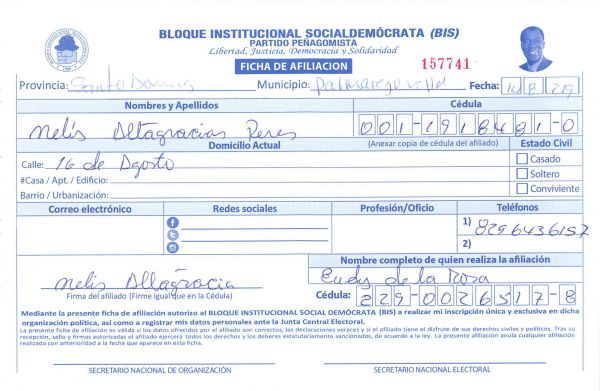 BLOQUE INSTITUCIONAL SOCIALDEMÓCRATA (BIS)
PARTIDO PEÑAGOMISTA
Libertad, Justicia, Democracia y Solidaridad
FICHA DE AFILIACION
157741
Provincia: Santo Domingo Municipio: Palmarejo villa Fecha: 14 8 219
Nombres y Apellidos Cédula
Nelis Altagracias Peres 001-1918481-0
Domicilio Actual (Anexar copia de cédula del afiliado) Estado Civil
Calle: 16 de Agosto Casado
#Casa / Apt. / Edificio: Soltero
Barrio / Urbanización: Conviviente
Correo electrónico Redes sociales Profesión/Oficio Teléfonos
1) 8296436157
2)
Nombre completo de quien realiza la afiliación
Nelis Altagracia Eudy de la Rosa
Firma del afiliado (Firme igual que en la Cédula) Cédula: 229-0026517-8
Mediante la presente ficha de afiliación autorizo al BLOQUE INSTITUCIONAL SOCIAL DEMÓCRATA (BIS) a realizar mi inscripción única y exclusiva en dicha
organización política, así como a registrar mis datos personales ante la Junta Central Electoral.
La presente ficha de afiliación es válida si los datos ofrecidos por el afiliado son correctos, las declaraciones veraces y si el afiliado tiene el disfrute de sus derechos civiles y políticos. Tras su
recepción, sello y firmas autorizadas el afiliado ejercerá todos los derechos y los deberes estatutariamente sancionados, de acuerdo a la ley. La presente afiliación anula cualquier afiliación
realizada con anterioridad a la fecha que aparece en esta ficha.
SECRETARIO NACIONAL DE ORGANIZACIÓN SECRETARIO NACIONAL ELECTORAL